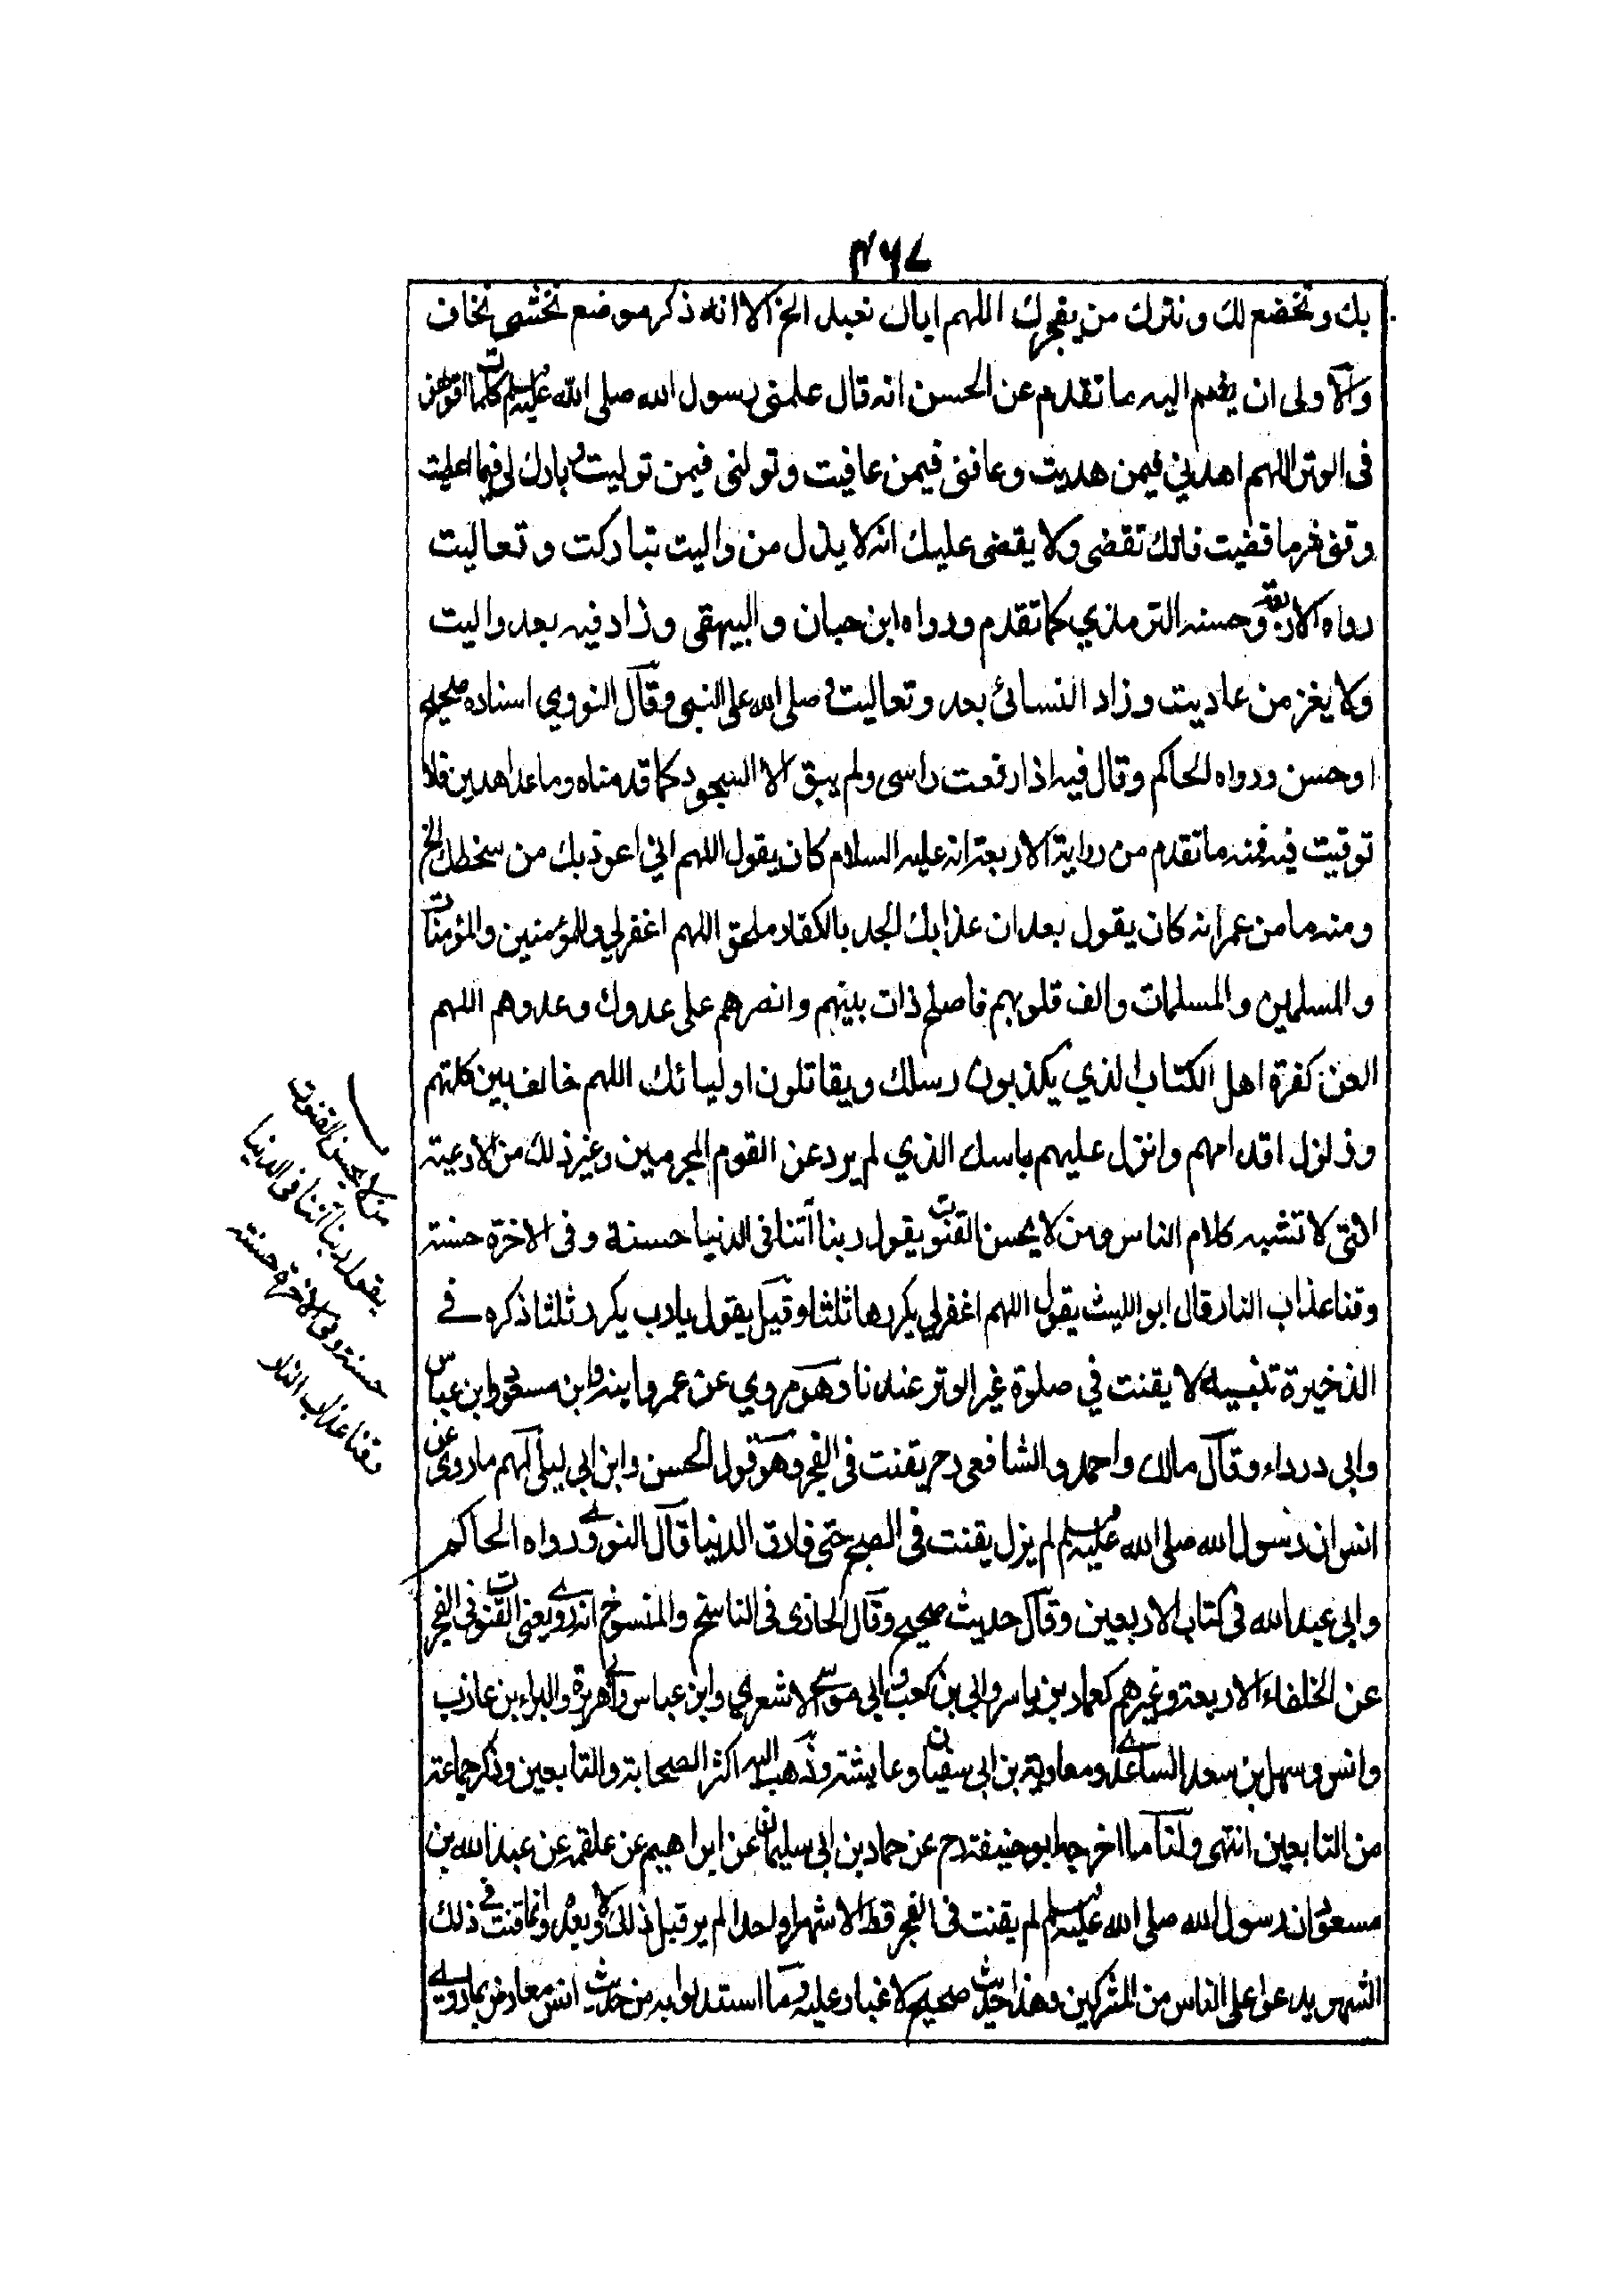 ۴۶۷
بك ونخضع لك ونترك من يفجرك اللهم اياك نعبد الخ الا انه ذكر موضع نخشى نخاف
والاولى ان يضم اليه ما تقدم عن الحسن انه قال علمنى رسول الله صلى الله عليه وسلم كلمات اقولهن
فى الوتر اللهم اهدني فيمن هديت وعافنى فيمن عافيت وتولنى فيمن توليت وبارك لى فيما اعطيت
وقنى شر ما قضيت فانك تقضى ولا يقضى عليك انه لا يذل من واليت تباركت وتعاليت
رواه الاربعة وحسنه الترمذي كما تقدم ورواه ابن حبان والبيهقى وزاد فيه بعد واليت
ولا يعز من عاديت وزاد النسائى بعد وتعاليت وصلى الله على النبى وقال النووي اسناده صحيح
او حسن ورواه الحاكم وقال فيه اذا رفعت راسى ولم يبق الا السجود كما قدمناه وما عدا هذين فلا
توقيت فيه فمنه ما تقدم من رواية الاربعة انه عليه السلام كان يقول اللهم اني اعوذ بك من سخطك الخ
ومنه ما من عمر انه كان يقول بعد ان عذابك الجد بالكفار ملحق اللهم اغفرلي وللمؤمنين والمؤمنات
والمسلمين والمسلمات والف قلوبهم فاصلح ذات بينهم وانصرهم على عدوك وعدوهم اللهم
العن كفرة اهل الكتاب الذي يكذبون رسلك ويقاتلون اوليائك اللهم خالف بين كلمتهم
وزلزل اقدامهم وانزل عليهم باسك الذي لم يرد عن القوم المجرمين وغير ذلك من الادعية
التى لا تشبه كلام الناس ومن لا يحسن القنوت يقول ربنا آتنا فى الدنيا حسنة وفى الاخرة حسنة
وقنا عذاب النار قال ابو الليث يقول اللهم اغفرلي يكررها ثلثا وقيل يقول يا رب يكرر ثلثا ذكره في
الذخيرة تنبيه لا يقنت في صلوة غير الوتر عندنا وهو مروي عن عمر وابنه وابن مسعود وابن عباس
وابى درداء وقال مالك واحمد والشافعى رح يقنت فى الفجر وهو قول الحسن وابن ابي ليلى لهم ما روى عن
انس ان رسول الله صلى الله عليه وسلم لم يزل يقنت فى الصبح حتى فارق الدنيا قال النووي ورواه الحاكم
وابى عبد الله فى كتاب الاربعين وقال حديث صحيح وقال الحازمى فى الناسخ والمنسوخ انه روي يعنى القنوت فى الفجر
عن الخلفاء الاربعة وغيرهم كعمار بن ياسر وابى بن كعب وابى موسى الاشعري وابن عباس وابى هريرة والبراء بن عازب
وانس وسهل بن سعد الساعدي ومعاوية بن ابى سفيان وعايشة وذهب اليه اكثر الصحابة والتابعين وذكر جماعة
من التابعين انتهى ولنا ما اخرجه ابو حنيفة رح عن حماد بن ابى سليمان عن ابراهيم عن علقمة عن عبد الله بن
مسعود ان رسول الله صلى الله عليه وسلم لم يقنت فى الفجر قط الا شهرا واحدا لم ير قبل ذلك ولا بعده وانما قنت في ذلك
الشهر يدعوا على الناس من المشركين وهذا حديث صحيح لا غبار عليه وما استدلوا به من حديث انس معارض بما روي
من لا يحسن القنوت
يقول ربنا آتنا فى الدنيا
حسنة وفى الاخرة حسنة
وقنا عذاب النار